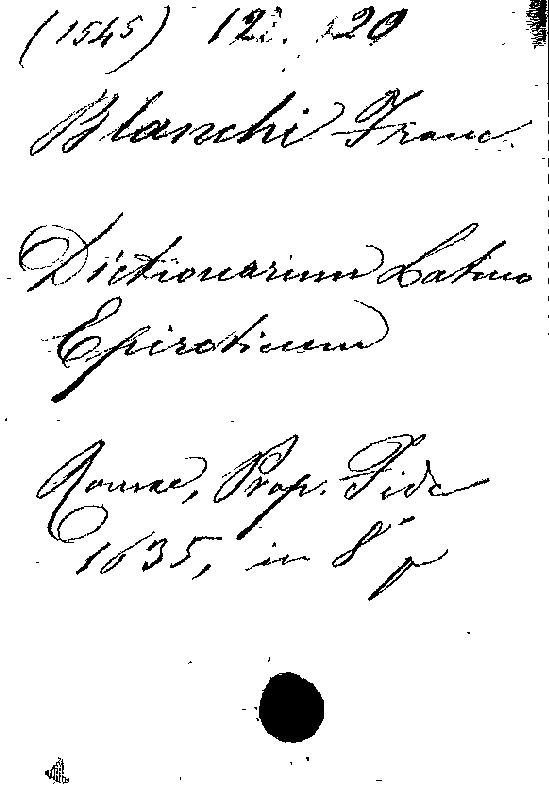 (1545) 122. 120
Blanchi Franc.
Dictionarium Latino
Epiroticum
Romae, Prop. Fide
1635, in 8° p